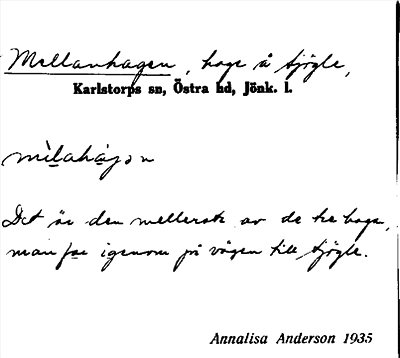 Mellanhagen, hage å Sjögle,
Karlstorps sn, Östra hd, Jönk. l.
mìlahàgən
Det är den mellersta av de tre hagar,
man far igenom på vägen till Sjögle.
Annalisa Anderson 1935